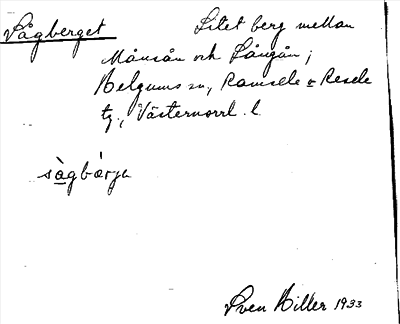 Sågberget Litet berg mellan
Månsån och Långån;
Helgums sn, Ramsele o Resele
tg., Västernorrl. l.
sàgbárja
Sven Hiller 1933